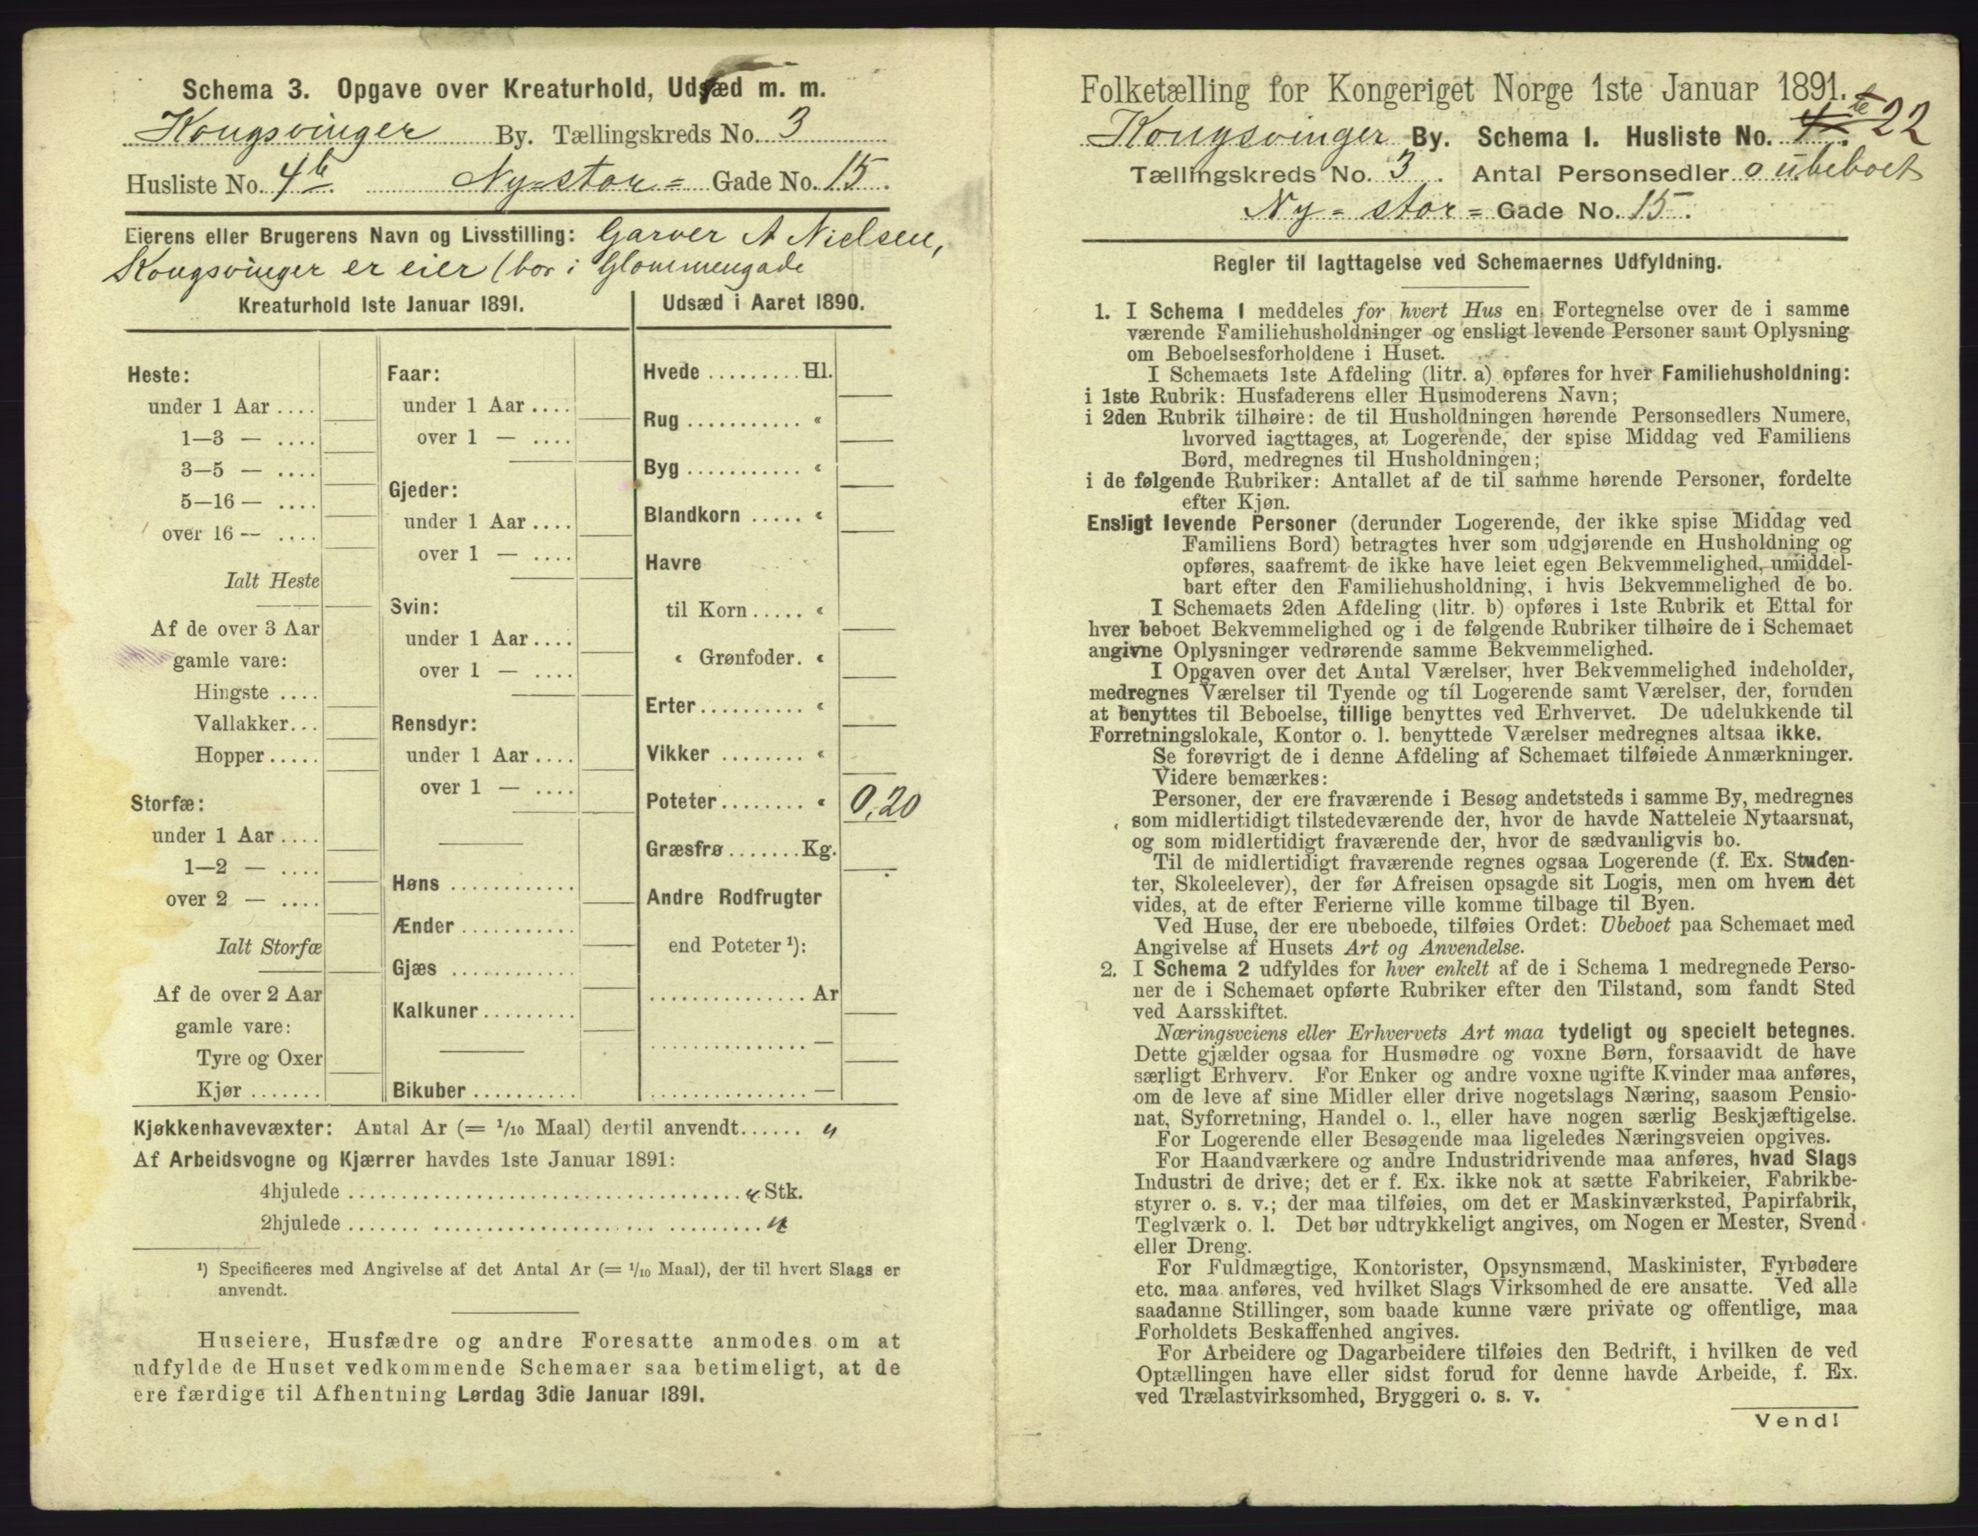 Schema 3. Opgave over Kreaturhold, Udsæd m. m.
Kongsvinger By. Tællingskreds No. 3
Husliste No. 4b Ny-stor- Gade No. 15.
Eierens eller Brugerens Navn og Livsstilling: Garver A Nielsen,
Kongsvinger er eier (bor i Glommengade
Kreaturhold 1ste Januar 1891.
Heste:
under 1 Aar ....
1—3 — ....
3—5 — ....
5—16 — ....
over 16 — ....
Ialt Heste
Af de over 3 Aar
gamle vare:
Hingste ....
Vallakker...
Hopper.....
Storfæ:
under 1 Aar....
1—2 — ....
over 2 — ....
Ialt Storfæ
Af de over 2 Aar
gamle vare:
Tyre og Oxer
Kjør .......
Faar:
under 1 Aar....
over 1 — ....
Gjeder:
under 1 Aar....
over 1 — ....
Svin:
under 1 Aar....
over 1 — ....
Rensdyr:
under 1 Aar....
over 1 — ....
Høns ............
Ænder ...........
Gjæs ............
Kalkuner.........
Bikuber ..........
Udsæd i Aaret 1890.
Hvede .........Hl.
Rug ........... «
Byg ........... «
Blandkorn ..... «
Havre
til Korn ..... «
« Grønfoder. «
Erter.......... «
Vikker ........ «
Poteter........ « 0,20
Græsfrø .......Kg.
Andre Rodfrugter
end Poteter ¹):
...............Ar
...............—
...............—
Kjøkkenhavevæxter: Antal Ar (= 1/10 Maal) dertil anvendt...... "
Af Arbeidsvogne og Kjærrer havdes 1ste Januar 1891:
4hjulede ..................................... " Stk.
2hjulede ..................................... "
¹) Specificeres med Angivelse af det Antal Ar (= 1/10 Maal), der til hvert Slags er
anvendt.
Huseiere, Husfædre og andre Foresatte anmodes om at
udfylde de Huset vedkommende Schemaer saa betimeligt, at de
ere færdige til Afhentning Lørdag 3die Januar 1891.
Folketælling for Kongeriget Norge 1ste Januar 1891.
Kongsvinger By. Schema I. Husliste No. 4b 22
Tællingskreds No. 3. Antal Personsedler 0 ubeboet
Ny-stor- Gade No. 15.
Regler til Iagttagelse ved Schemaernes Udfyldning.
1. I Schema 1 meddeles for hvert Hus en Fortegnelse over de i samme
værende Familiehusholdninger og ensligt levende Personer samt Oplysning
om Beboelsesforholdene i Huset.
I Schemaets 1ste Afdeling (litr. a) opføres for hver Familiehusholdning:
i 1ste Rubrik: Husfaderens eller Husmoderens Navn;
i 2den Rubrik tilhøire: de til Husholdningen hørende Personsedlers Numere,
hvorved iagttages, at Logerende, der spise Middag ved Familiens
Bord, medregnes til Husholdningen;
i de følgende Rubriker: Antallet af de til samme hørende Personer, fordelte
efter Kjøn.
Ensligt levende Personer (derunder Logerende, der ikke spise Middag ved
Familiens Bord) betragtes hver som udgjørende en Husholdning og
opføres, saafremt de ikke have leiet egen Bekvemmelighed, umiddel-
bart efter den Familiehusholdning, i hvis Bekvemmelighed de bo.
I Schemaets 2den Afdeling (litr. b) opføres i 1ste Rubrik et Ettal for
hver beboet Bekvemmelighed og i de følgende Rubriker tilhøire de i Schemaet
angivne Oplysninger vedrørende samme Bekvemmelighed.
I Opgaven over det Antal Værelser, hver Bekvemmelighed indeholder,
medregnes Værelser til Tyende og til Logerende samt Værelser, der, foruden
at benyttes til Beboelse, tillige benyttes ved Erhvervet. De udelukkende til
Forretningslokale, Kontor o. l. benyttede Værelser medregnes altsaa ikke.
Se forøvrigt de i denne Afdeling af Schemaet tilføiede Anmærkninger.
Videre bemærkes:
Personer, der ere fraværende i Besøg andetsteds i samme By, medregnes
som midlertidigt tilstedeværende der, hvor de havde Natteleie Nytaarsnat,
og som midlertidigt fraværende der, hvor de sædvanligvis bo.
Til de midlertidigt fraværende regnes ogsaa Logerende (f. Ex. Studen-
ter, Skoleelever), der før Afreisen opsagde sit Logis, men om hvem det
vides, at de efter Ferierne ville komme tilbage til Byen.
Ved Huse, der ere ubeboede, tilføies Ordet: Ubeboet paa Schemaet med
Angivelse af Husets Art og Anvendelse.
2. I Schema 2 udfyldes for hver enkelt af de i Schema 1 medregnede Perso-
ner de i Schemaet opførte Rubriker efter den Tilstand, som fandt Sted
ved Aarsskiftet.
Næringsveiens eller Erhvervets Art maa tydeligt og specielt betegnes.
Dette gjælder ogsaa for Husmødre og voxne Børn, forsaavidt de have
særligt Erhverv. For Enker og andre voxne ugifte Kvinder maa anføres,
om de leve af sine Midler eller drive nogetslags Næring, saasom Pensio-
nat, Syforretning, Handel o. l., eller have nogen særlig Beskjæftigelse.
For Logerende eller Besøgende maa ligeledes Næringsveien opgives.
For Haandværkere og andre Industridrivende maa anføres, hvad Slags
Industri de drive; det er f. Ex. ikke nok at sætte Fabrikeier, Fabrikbe-
styrer o. s. v.; der maa tilføies, om det er Maskinværksted, Papirfabrik,
Teglværk o. l. Det bør udtrykkeligt angives, om Nogen er Mester, Svend
eller Dreng.
For Fuldmægtige, Kontorister, Opsynsmænd, Maskinister, Fyrbødere
etc. maa anføres, ved hvilket Slags Virksomhed de ere ansatte. Ved alle
saadanne Stillinger, som baade kunne være private og offentlige, maa
Forholdets Beskaffenhed angives.
For Arbeidere og Dagarbeidere tilføies den Bedrift, i hvilken de ved
Optællingen have eller sidst forud for denne havde Arbeide, f. Ex.
ved Trælastvirksomhed, Bryggeri o. s. v.
Vend!